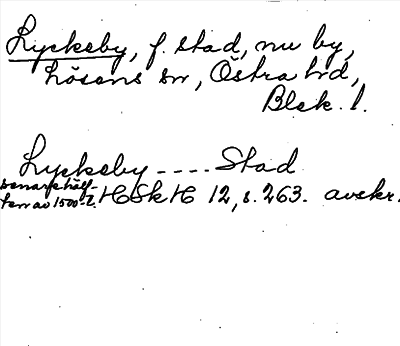 Lyckeby, f. stad, nu by,
Lösens sn, Östra hd,
Blek. l.
Lyckeby ---- Stad
senare hälf-
ten av 1500-t. HSkH 12, s. 263. avskr.